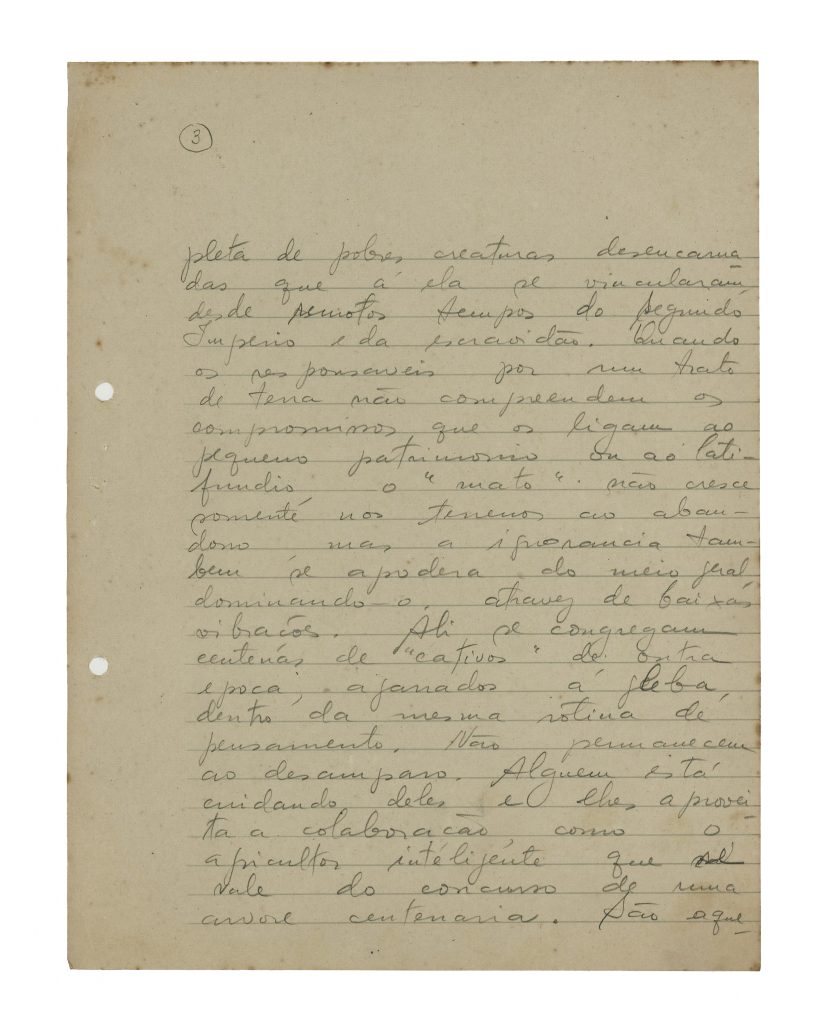 3
pleta de pobres creaturas desencarna
das que á ela se vincularam
desde remotos tempos do segundo
Imperio e da escravidão. Quando
os responsaveis por um trato
de terra não compreendem os
compromissos que os ligam ao
pequeno patrimonio ou ao lati-
fundio, o "mato" não cresce
somente nos terrenos ao aban-
dono mas a ignorancia tam-
bem se apodera do meio geral
dominando-o, atravez de baixas
vibrações. Ali se congregam
centenas de "cativos" de outra
epoca, agarrados á gleba,
dentro da mesma rotina de
pensamento. Não permanecem
ao desamparo. Alguem está
cuidando deles e lhes aprovei
ta a colaboração, como o
apicultor inteligente que se
vale do concurso de uma
arvore centenaria. São aque-